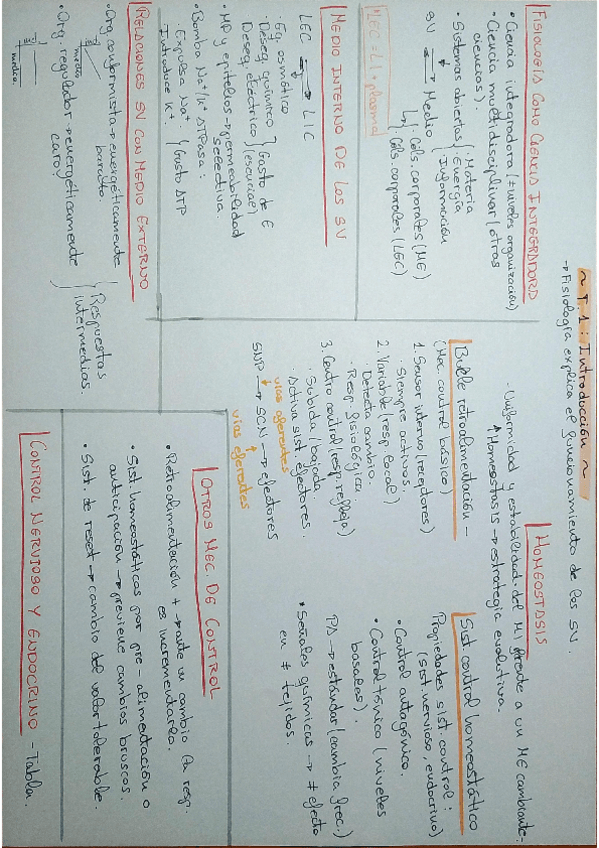 ~ T.1: Introducción ~
→ Fisiología explica el funcionamiento de los SV.
FISIOLOGÍA COMO CIENCIA INTEGRADORA
• Ciencia integradora (≠ niveles organización)
• Ciencia multidisciplinar (otras
ciencias).
• Sistemas abiertos { Materia
Energía
Información
SV ↔ Medio
↳ { Céls. corporales (ME)
Céls. corporales (LEC)
LEC = LI + plasma
MEDIO INTERNO DE LOS SV
LEC ⇄ LIC
Eq. osmótico
Deseq. químico } Gasto de E
Deseq. eléctrico } (esencial)
• MP y epitelios → permeabilidad
selectiva
• Bomba Na⁺/K⁺ ATPasa:
· Expulsa Na⁺. } Gasto ATP
· Introduce K⁺
RELACIONES SV CON MEDIO EXTERNO
• Org. conformista → energéticamente
barato
medio
• Org. regulador → energéticamente
caro
medio
} Respuestas
intermedias.
HOMEOSTASIS
- Uniformidad y estabilidad del MI frente a un ME cambiante.
↑ Homeostasis → estrategia evolutiva.
Bucle retroalimentación -
(Mec. control básico)
1. Sensor interno (receptores)
· Siempre activos.
2. Variable (resp. local)
· Detecta cambio.
· Resp. fisiológica
3. Centro control (resp. refleja)
· Subida / bajada
· Activa sist. efectores.
vías aferentes
SNP → SCN → efectores
vías eferentes
Sist. control homeostático
Propiedades sist. control:
(sist. nervioso, endocrino)
• Control antagónico.
• Control tónico (niveles
basales).
PA → estándar (cambia frec.)
• Señales químicas → ≠ efecto
en ≠ tejidos.
OTROS MEC. DE CONTROL
• Retroalimentación + → ante un cambio la resp.
es incrementarlo.
• Sist. homeostáticos por pre-alimentación o
anticipación → previene cambios bruscos.
• Sist. de reset → cambio del valor tolerable.
CONTROL NERVIOSO Y ENDOCRINO - Tabla.